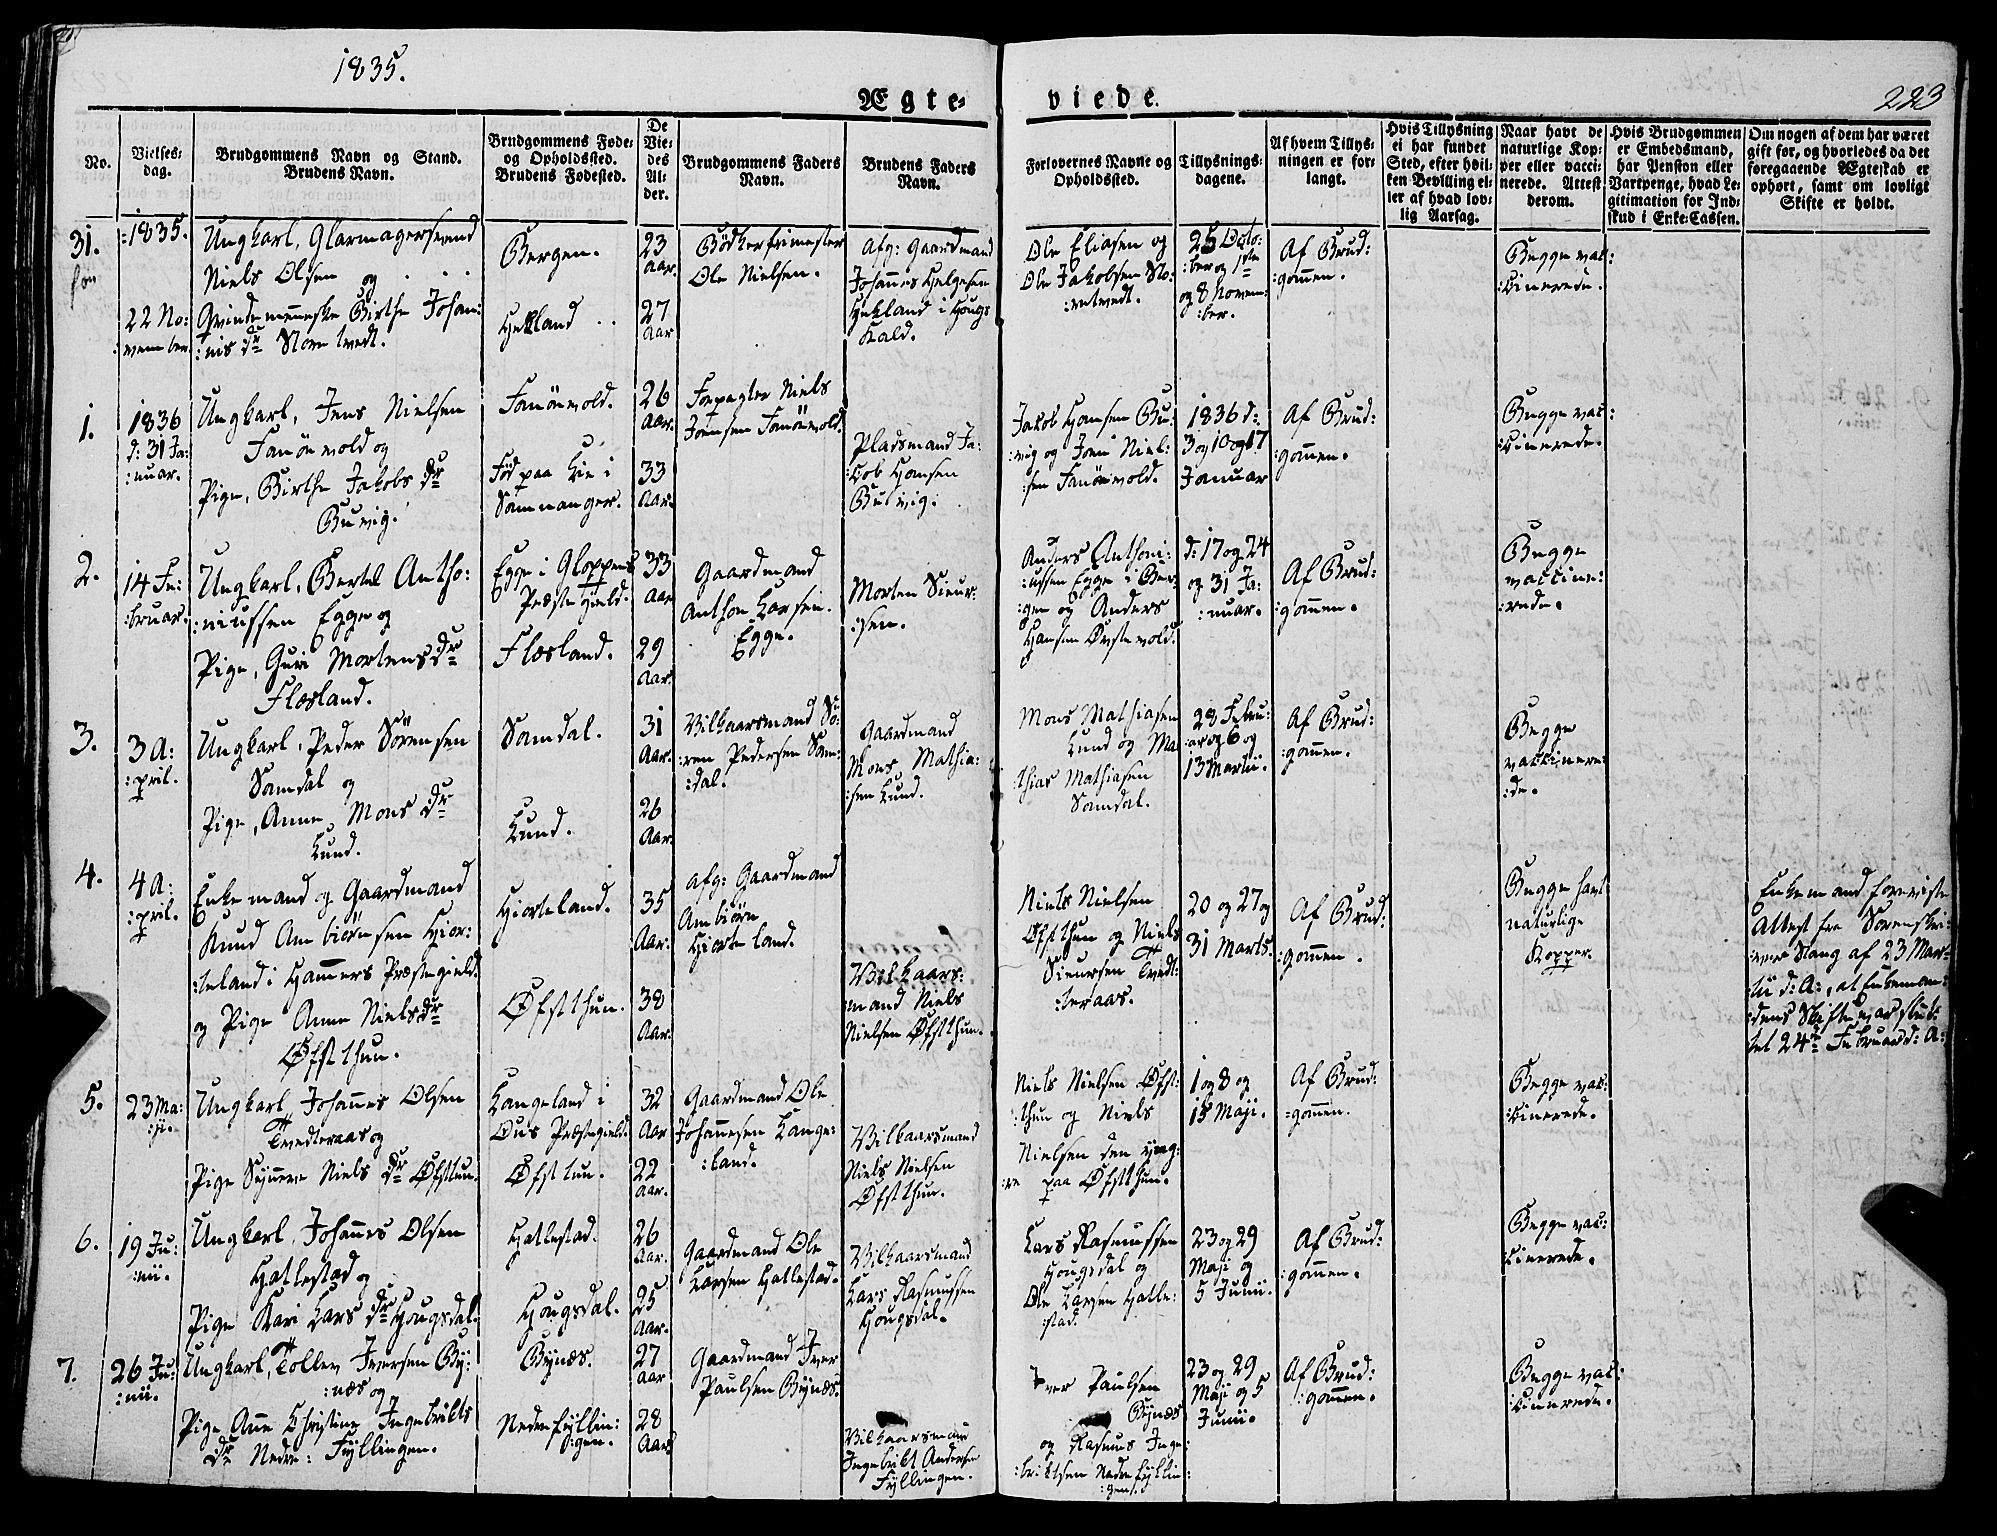 1835.
Ægte-
viede.
223
No.
Vielses-
dag.
Brudgommens Navn og Stand.
Brudens Navn.
Brudgommens Føde-
og Opholdssted.
Brudens Fødested.
De
Vie-
des
Al-
der.
Brudgommens Faders
Navn.
Brudens Faders
Navn.
Forlovernes Navne og
Opholdssted.
Tillysnings-
dagene.
Af hvem Tillys-
ningen er for-
langt.
Hvis Tillysning
ei har fundet
Sted, efter hvil-
ken Bevilling el-
ler af hvad lov-
lig Aarsag.
Naar havt de
naturlige Kop-
per eller vacci-
nerede. Attest
derom.
Hvis Brudgommen
er Embedsmand,
har Pension eller
Vartpenge, hvad Le-
gitimation for Ind-
skud i Enke-Cassen.
Om nogen af dem har været
gift før, og hvorledes da det
foregaaende Ægteskab er
ophørt, samt om lovligt
Skifte er holdt.
31.
1835.
22 No:
:vember.
Ungkarl, Glarmagersvend
Niels Olsen og
Qvindemenneske Birthe Johan:
:nis dr Storetvedt.
Bergen.
Hekland
23
Aar.
27
Aar
Bödkerfrimester
Ole Nielsen.
Afg: Gaardmand
Johannes Helgesen
Hekland i Hougs
Kald.
Ole Eliasen og
Ole Jakobsen Sto:
:retvedt.
25 Octo:
:ber og 1ste
og 8 Novem:
:ber.
Af Brud:
:gommen.
Begge vac:
:cinerede.
1.
1836
d: 31 Ja:
:nuar.
Ungkarl, Jens Nielsen
Fanönvold og
Pige, Birthe Jakobs dr
Buvig.
Fanönvold.
Föd paa Lie i
Samnanger.
26
Aar.
33
Aar.
Forpagter Niels
Jönnsen Fanönvold.
Pladsmand Ja:
:cob Hansen
Buvig.
Jakob Hansen Bu:
:vig og Jens Niel:
:sen Fanönvold.
1836 d:
3 og 10 og 17
Januar
Af Brud:
:gommen.
Begge vac:
:cinerede.
2.
14 Fe:
:bruar.
Ungkarl, Bertel Antho:
:niussen Egge og
Pige, Guri Mortens dr
Flæsland.
Egge i Gloppens
Præstegield.
Flæsland.
33
Aar
29
Aar.
Gaardmand
Anthon Larsen
Egge.
Morten Sieur:
:sen.
Anders Anthoni:
:ussen Egge i Ber:
:gen og Anders
Hansen Örstevold.
d: 17 og 24
og 31 Ja:
:nuar.
Af Brud:
:gommen.
Begge
vaccine:
:rede.
3.
3 A:
:pril.
Ungkarl, Peder Sörensen
Samdal og
Pige, Anne Mons dr
Lund.
Samdal.
Lund.
31
Aar.
26
Aar.
Vilkaarsmand Sö:
:ren Pedersen Sam:
:dal.
Gaardmand
Mons Mathia:
:sen Lund.
Mons Mathiasen
Lund og Ma
thias Mathiasen
Samdal.
28 Febru:
:ar og 6 og
13 Martii.
Af Brud:
:gommen.
Begge
vaccinere:
:de.
4.
4 A:
:pril.
Enkemand og Gaardmand
Knud Ambiörnsen Hjor:
:teland i Hammers Præstegield
og Pige Anne Niels dr
Øfstthun.
Hjorteland.
Øfstthun.
35
Aar.
38
Aar.
Afg: Gaardmand
Ambiörn
Hjorteland.
Vilkaars:
:mand Niels
Nielsen Øfstthun.
Niels Nielsen
Øfstthun og Niels
Sieursen Tvedt:
:teraas.
20 og 27 og
31 Marts.
Af Brud:
:gommen.
Begge havt
naturlige
Kopper.
Enkemand foreviste
Attest fra Sorenskri:
:ver Stang af 23 Mar:
:tii d: A:, at Enkeman:
:dens Skifte var slut:
tet 24de Februar d: A:
5.
23 Ma:
:ji.
Ungkarl, Johannes Olsen
Tvedteraas og
Pige Synneve Niels dr Øfsttun.
Langeland i
Ous Præstegield.
Øfsttun.
32
Aar
22
Aar.
Gaardmand Ole
Johannesen Lange:
:land.
Vilkaarsmand
Niels Nielsen
Øfstthun.
Niels Nielsen Øfst:
:thun og Niels
Nielsen den yng:
:re paa Øfstthun.
1 og 8 og
15 Maji.
Af Brud:
:gommen.
Begge vac:
:cinerede.
6.
19 Ju:
:nii.
Ungkarl, Johannes Olsen
Hatlestad og
Pige Kari Lars dr Hougsdal.
Hatlestad.
Hougsdal.
26
Aar.
25
Aar.
Gaardmand Ole
Larsen Hatlestad.
Vilkaarsmand
Lars Rasmussen
Hougsdal.
Lars Rasmussen
Hougsdal og
Ole Larsen Hatle:
:stad.
23 og 29
Maji og
5 Junii.
Af Brud:
:gommen.
Begge vac:
:cinerede.
7.
26 Ju:
:nii.
Ungkarl, Tollev Iversen By:
:næs og
Pige Anne Christine Ingebrikts
dr Nedre: Fyllingen.
Bynæs.
Nedrefyllin:
:gen.
27
Aar
28
Aar.
Gaardmand Iver
Paulsen Bynæs.
Vilkaarsmand
Ingebrikt Andersen
Fyllingen.
Iver Paulsen
Bynæs
og Rasmus Inge:
:briktsen Nedrefyllin
:gen.
23 og 29
Maji og 5
Junii.
Af Brud:
:gommen.
Begge vac:
:cinerede.